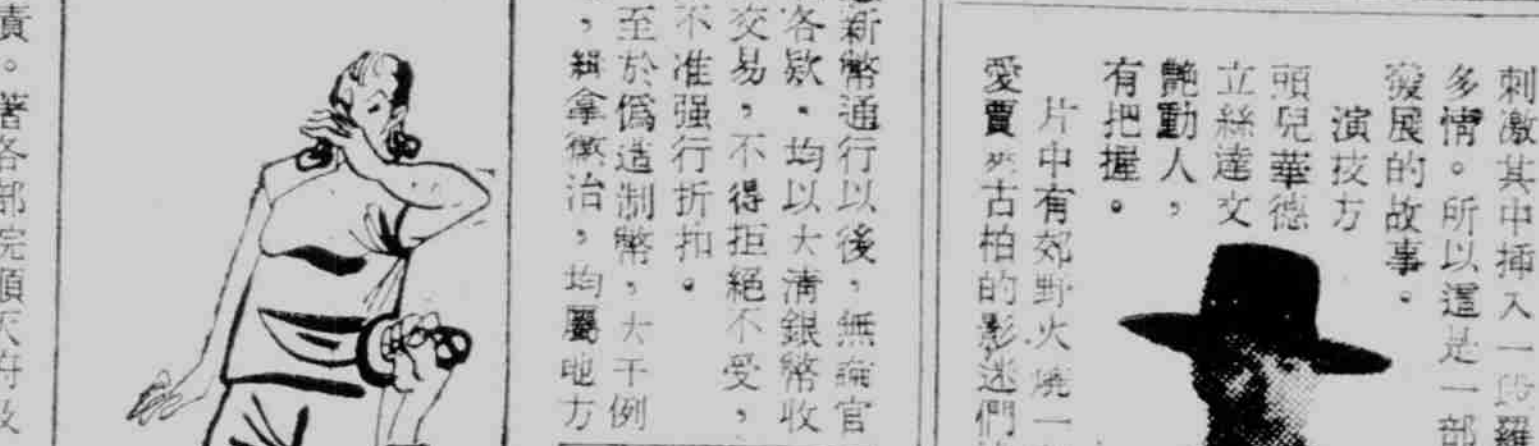 刺激其中揷入一段羅
多情。所以這是一部
發展的故事。
演技方
頭兒華德
立絲達文
艶動人，
有把握。
片中有郊野火燒一
愛賈利古柏的影迷們
新幣通行以後，無論官
各欵．均以大淸銀幣收
交易，不得拒絕不受，
不准强行折扣。
至於僞造制幣，大干例
，緝拿懲治，均屬地方
責。著各部院順天府及